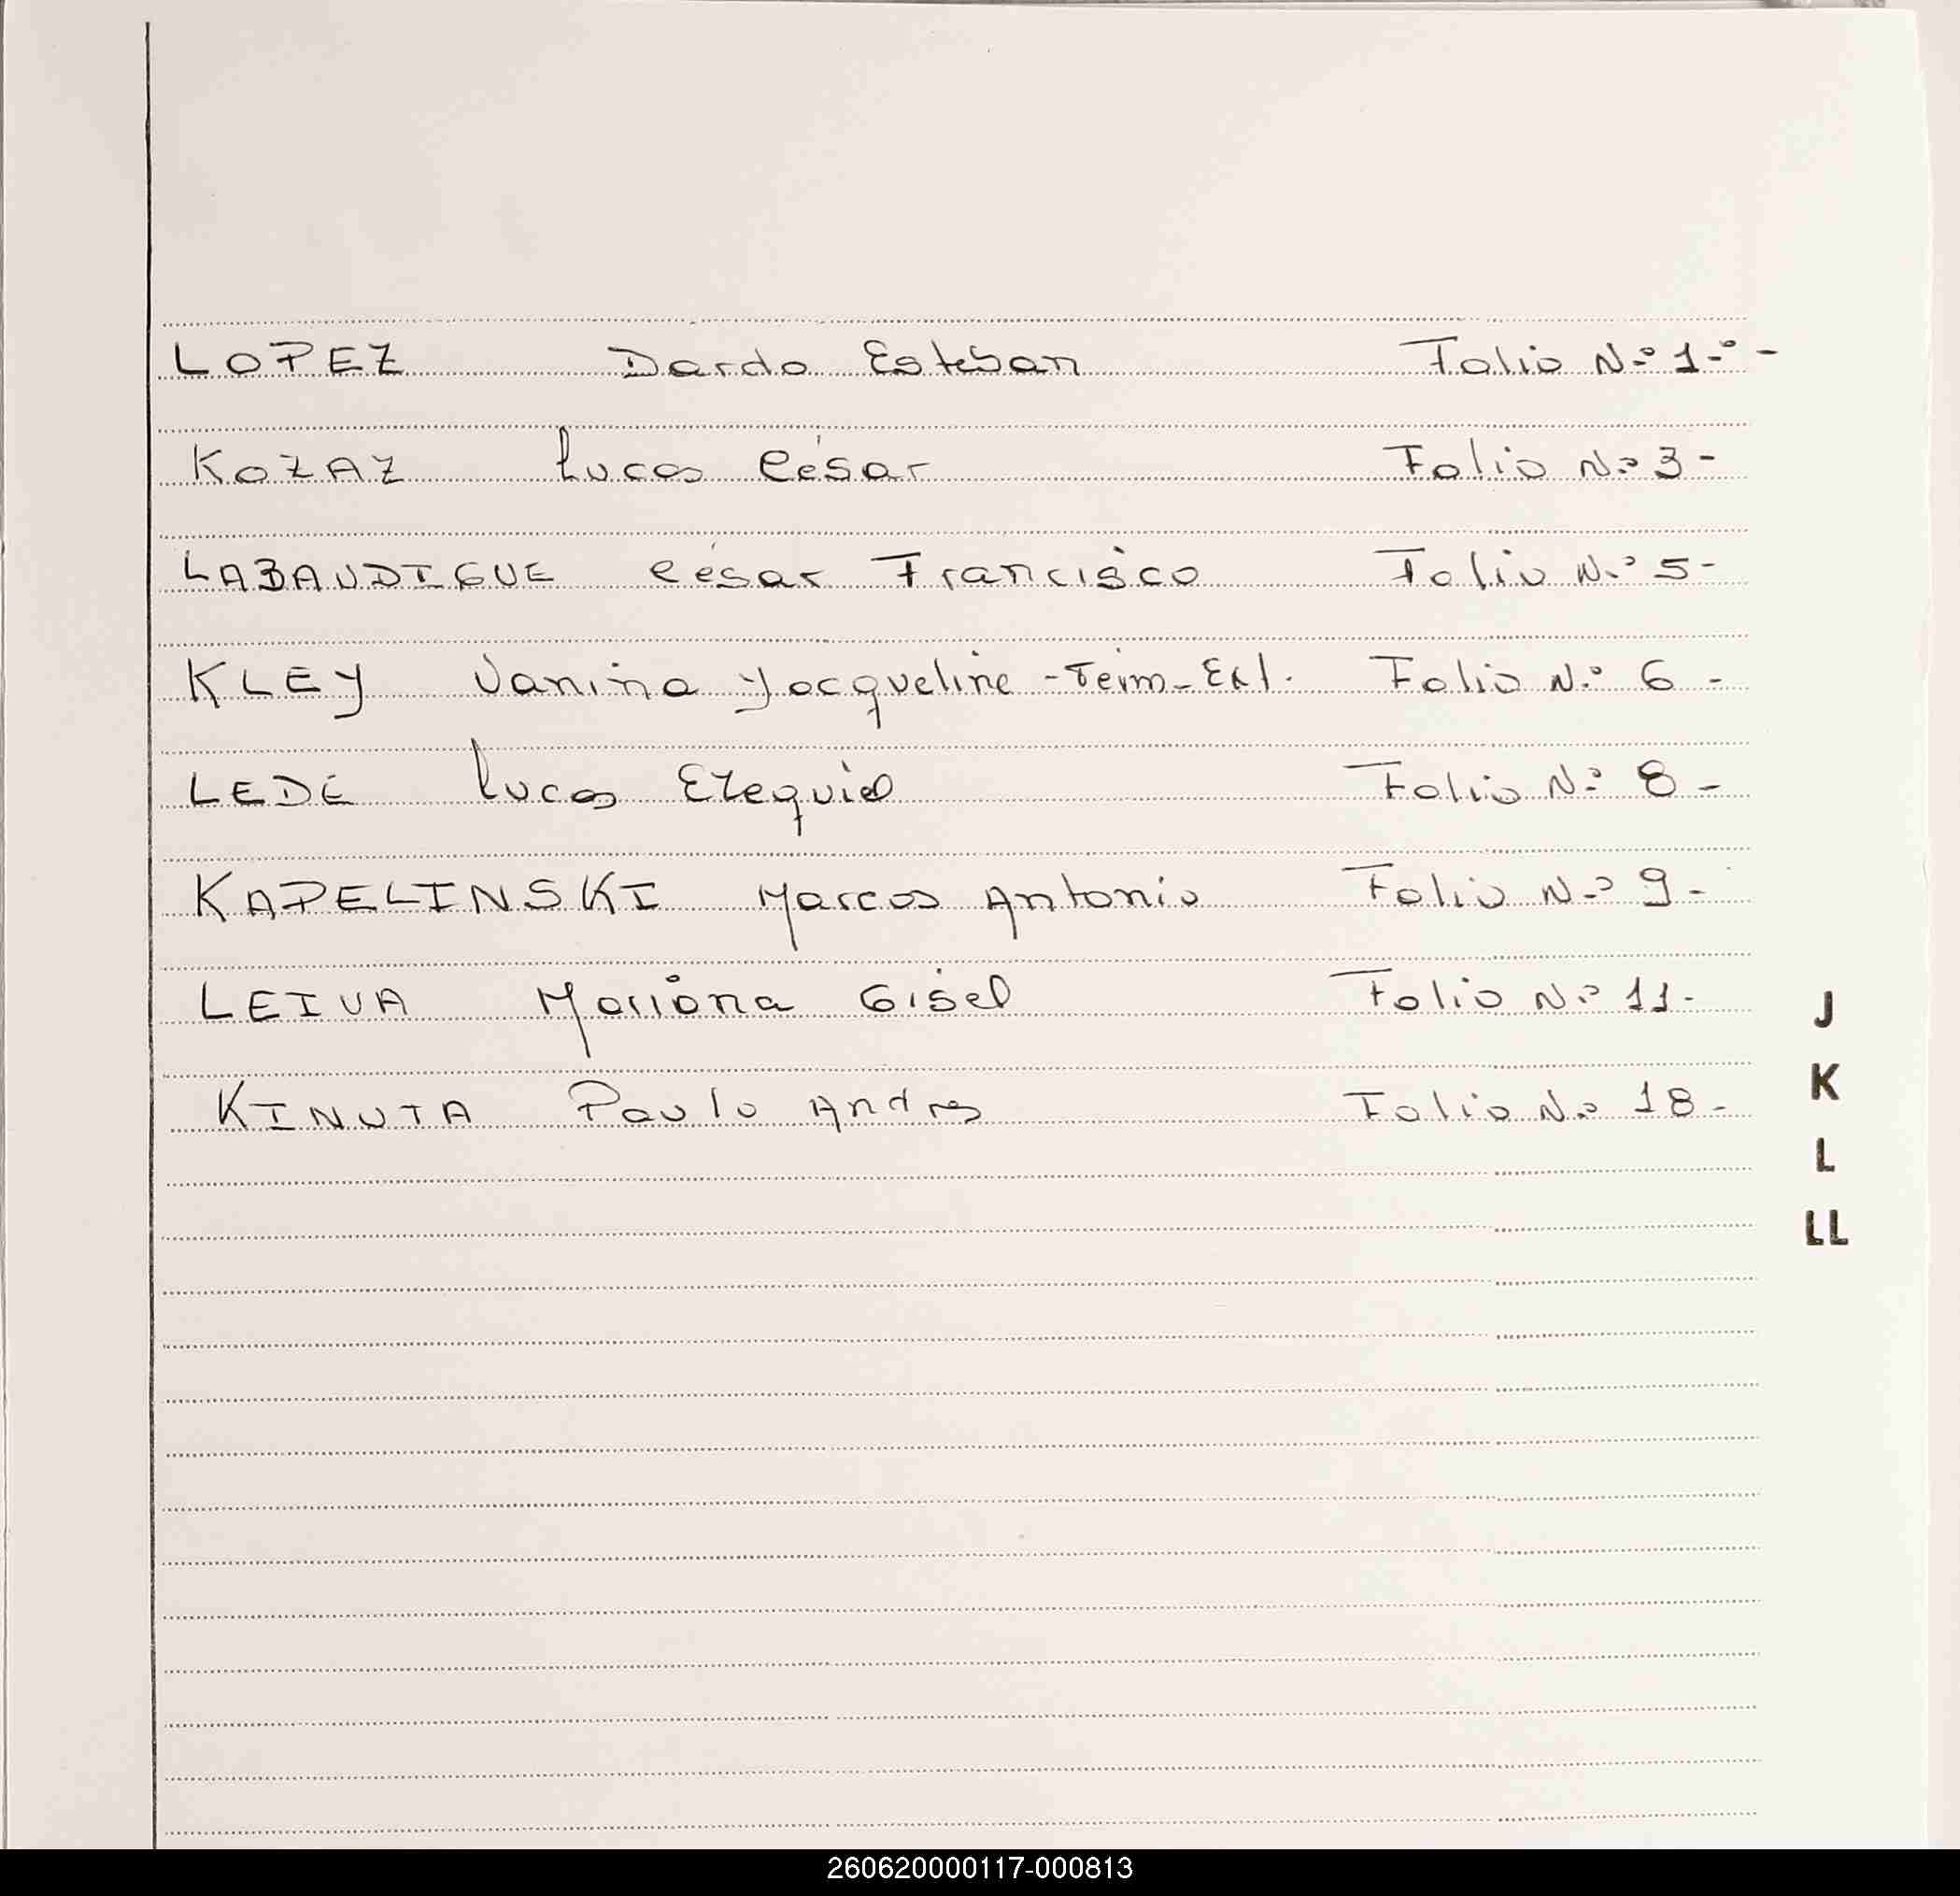 LOPEZ Dardo Esteban Folio N.º 1-º -
KOZAZ Lucas César Folio N.º 3 -
LABAUDIGUE César Francisco Folio N.º 5 -
KLEY Vanina Jacqueline - Ext. Folio N.º 6 -
LEDE Lucas Ezequiel Folio N.º 8 -
KAPELINSKI Marcos Antonio Folio N.º 9 -
LEIVA Mariana Gisel Folio N.º 11 -
KINUTA Paulo Andres Folio N.º 18 -
J
K
L
LL
260620000117-000813